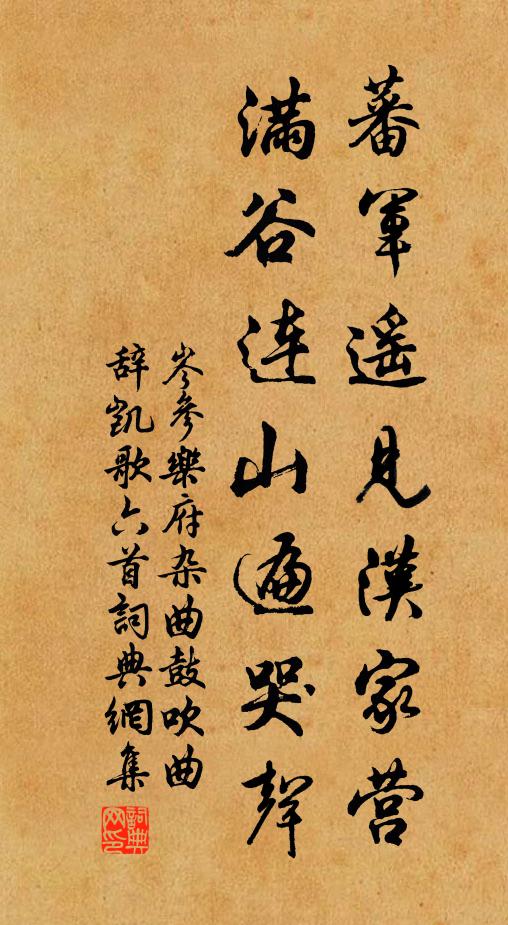 蕃軍遥見漢家营
滿谷連山遍哭聲
岑參樂府杂曲鼓吹曲
辞凱歌六首詞典網集
詞典
网印